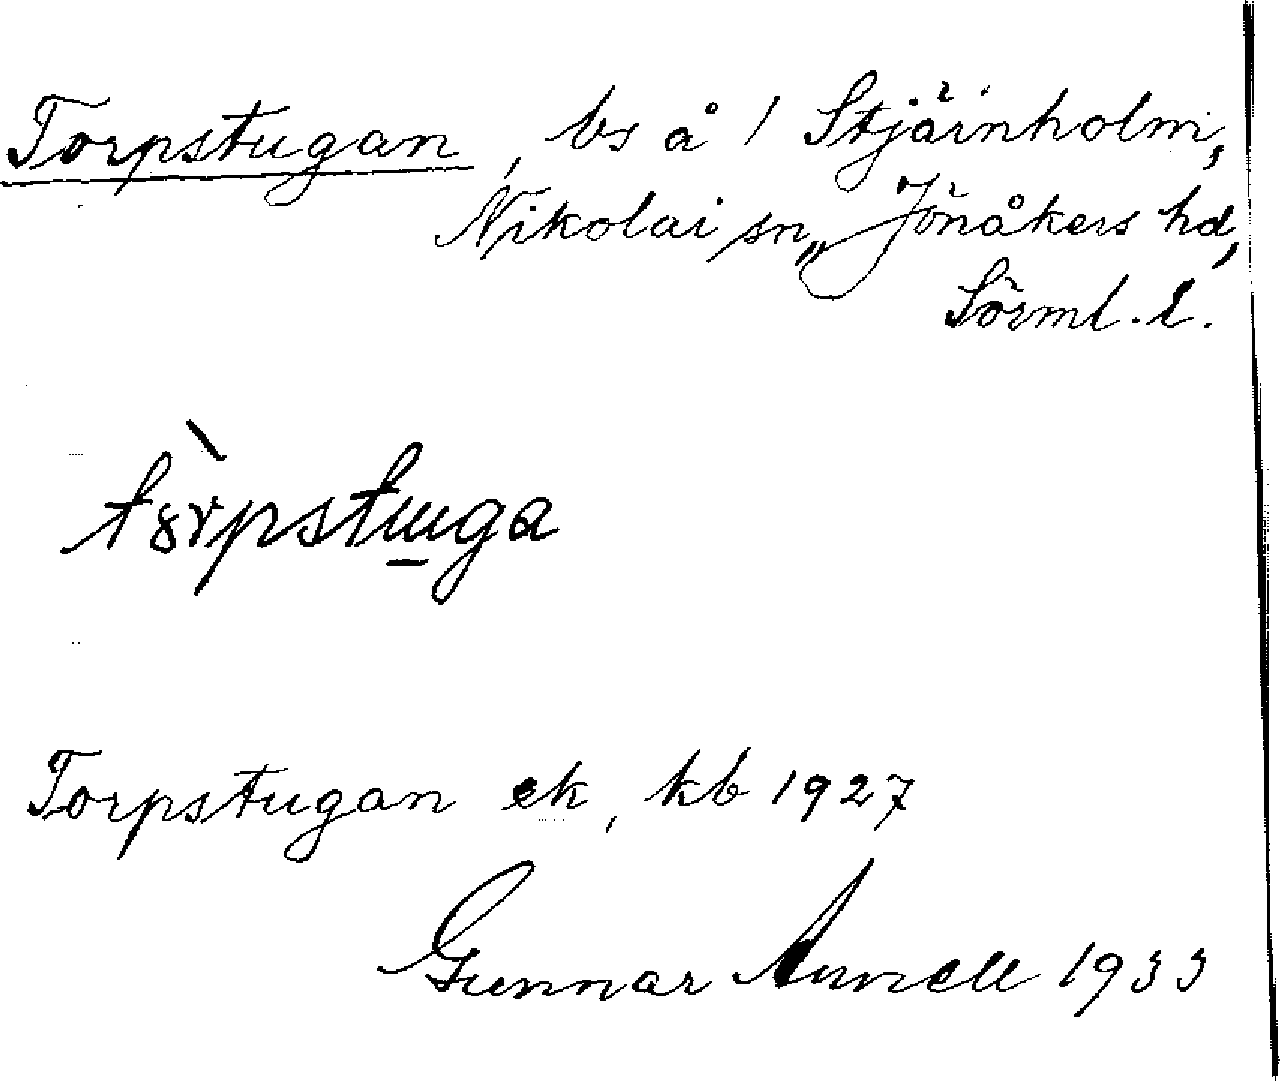 Torpstugan, bs å 1 Stjärnholm,
Nikolai sn, Jönåkers hd,
Sörml. l.
tɔ̀rpstɯga
Torpstugan ek, kb 1927
Gunnar 1933